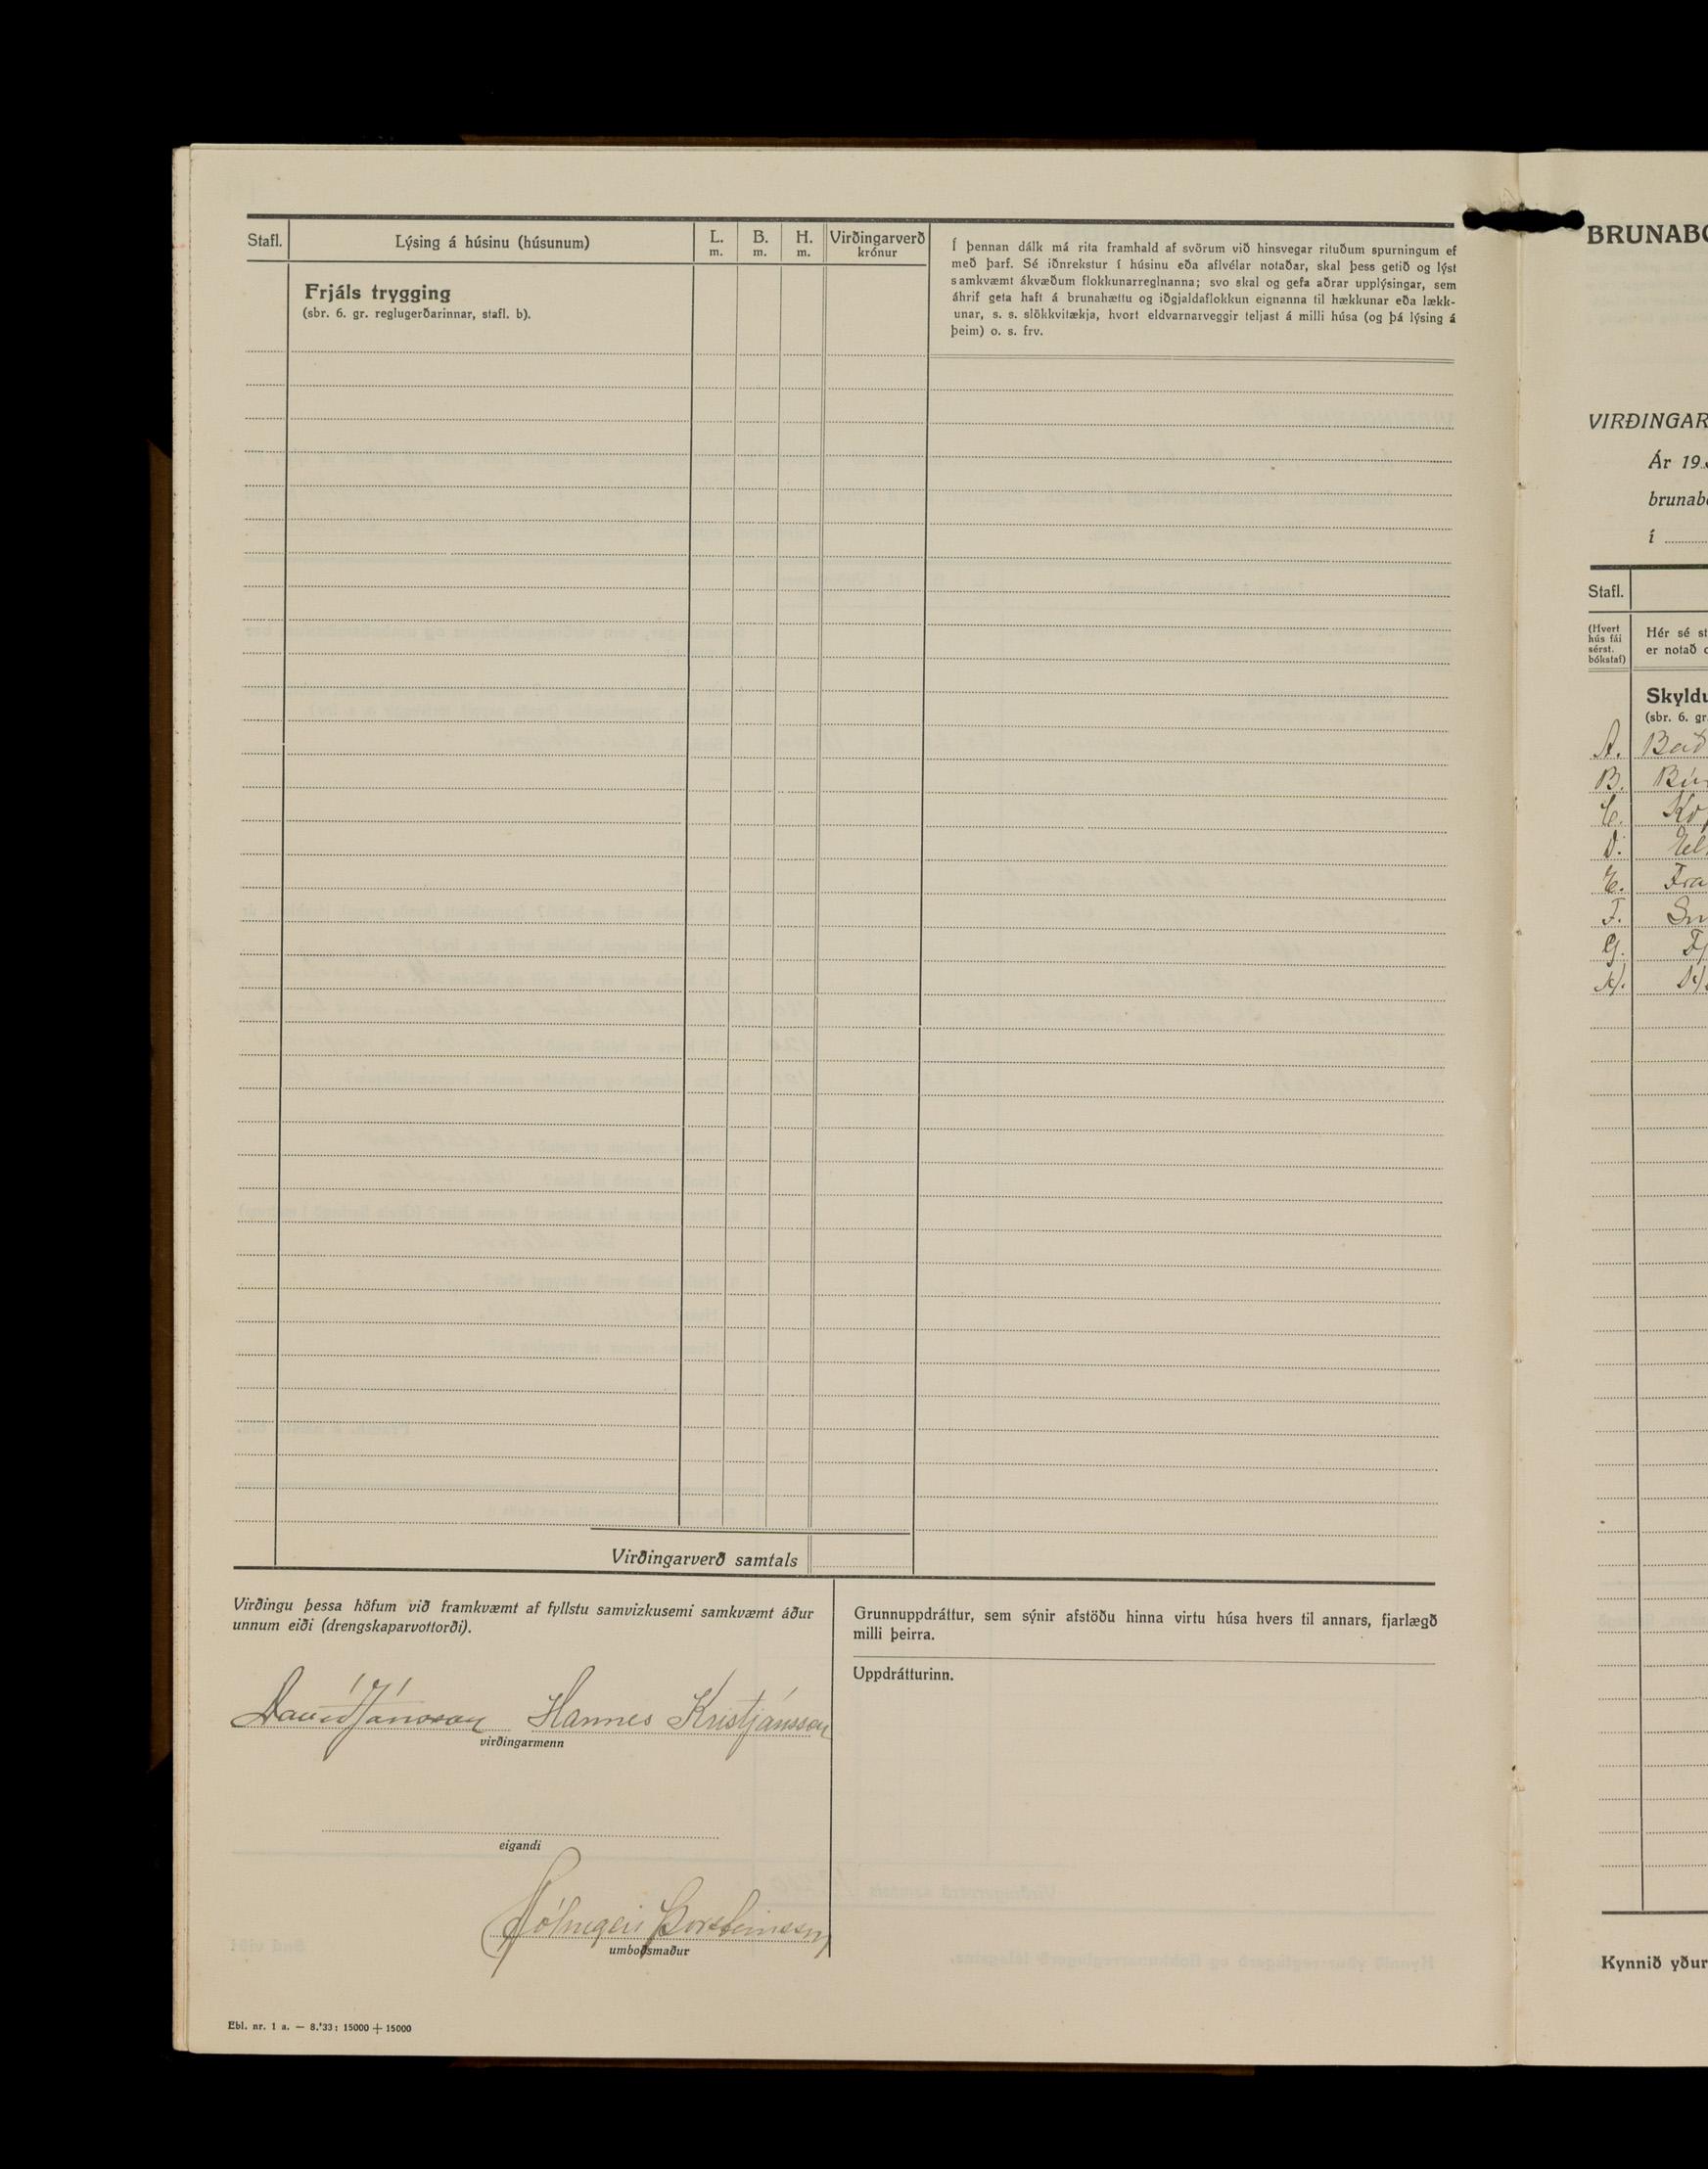 Stafl.
Lýsing á húsinu (húsunum)
L.
m.
B.
m.
H.
m.
Virðingarverð
krónur
Frjáls trygging
(sbr. 6. gr. reglugerðarinnar, stafl. b).
Í þennan dálk má rita framhald af svörum við hinsvegar rituðum spurningum ef
með þarf. Sé iðnrekstur í húsinu eða aflvélar notaðar, skal þess getið og lýst
samkvæmt ákvæðum flokkunarreglnanna; svo skal og gefa aðrar upplýsingar, sem
áhrif geta haft á brunahættu og iðgjaldaflokkun eignanna til hækkunar eða lækk-
unar, s. s. slökkvitækja, hvort eldvarnarveggir teljast á milli húsa (og þá lýsing á
þeim) o. s. frv.
Virðingarverð samtals
Virðingu þessa höfum við framkvæmt af fyllstu samvizkusemi samkvæmt áður
unnum eiði (drengskaparvottorði).
Davíð Jónsson Hannes Kristjánsson
virðingarmenn
eigandi
Hólmgeir Þorsteinsson
umboðsmaður
Grunnuppdráttur, sem sýnir afstöðu hinna virtu húsa hvers til annars, fjarlægð
milli þeirra.
Uppdrátturinn.
Ebl. nr. 1 a. — 8.'33: 15000 + 15000
BRUNABÓ
VIRÐINGAR
Ár 19
brunabó
í
Stafl.
(Hvert
hús fái
sérst.
bókstaf)
Hér sé st
er notað o
Skyldu
(sbr. 6. gr
A. Bað
B.
C.
D.
E.
F.
G.
H.
Kynnið yður